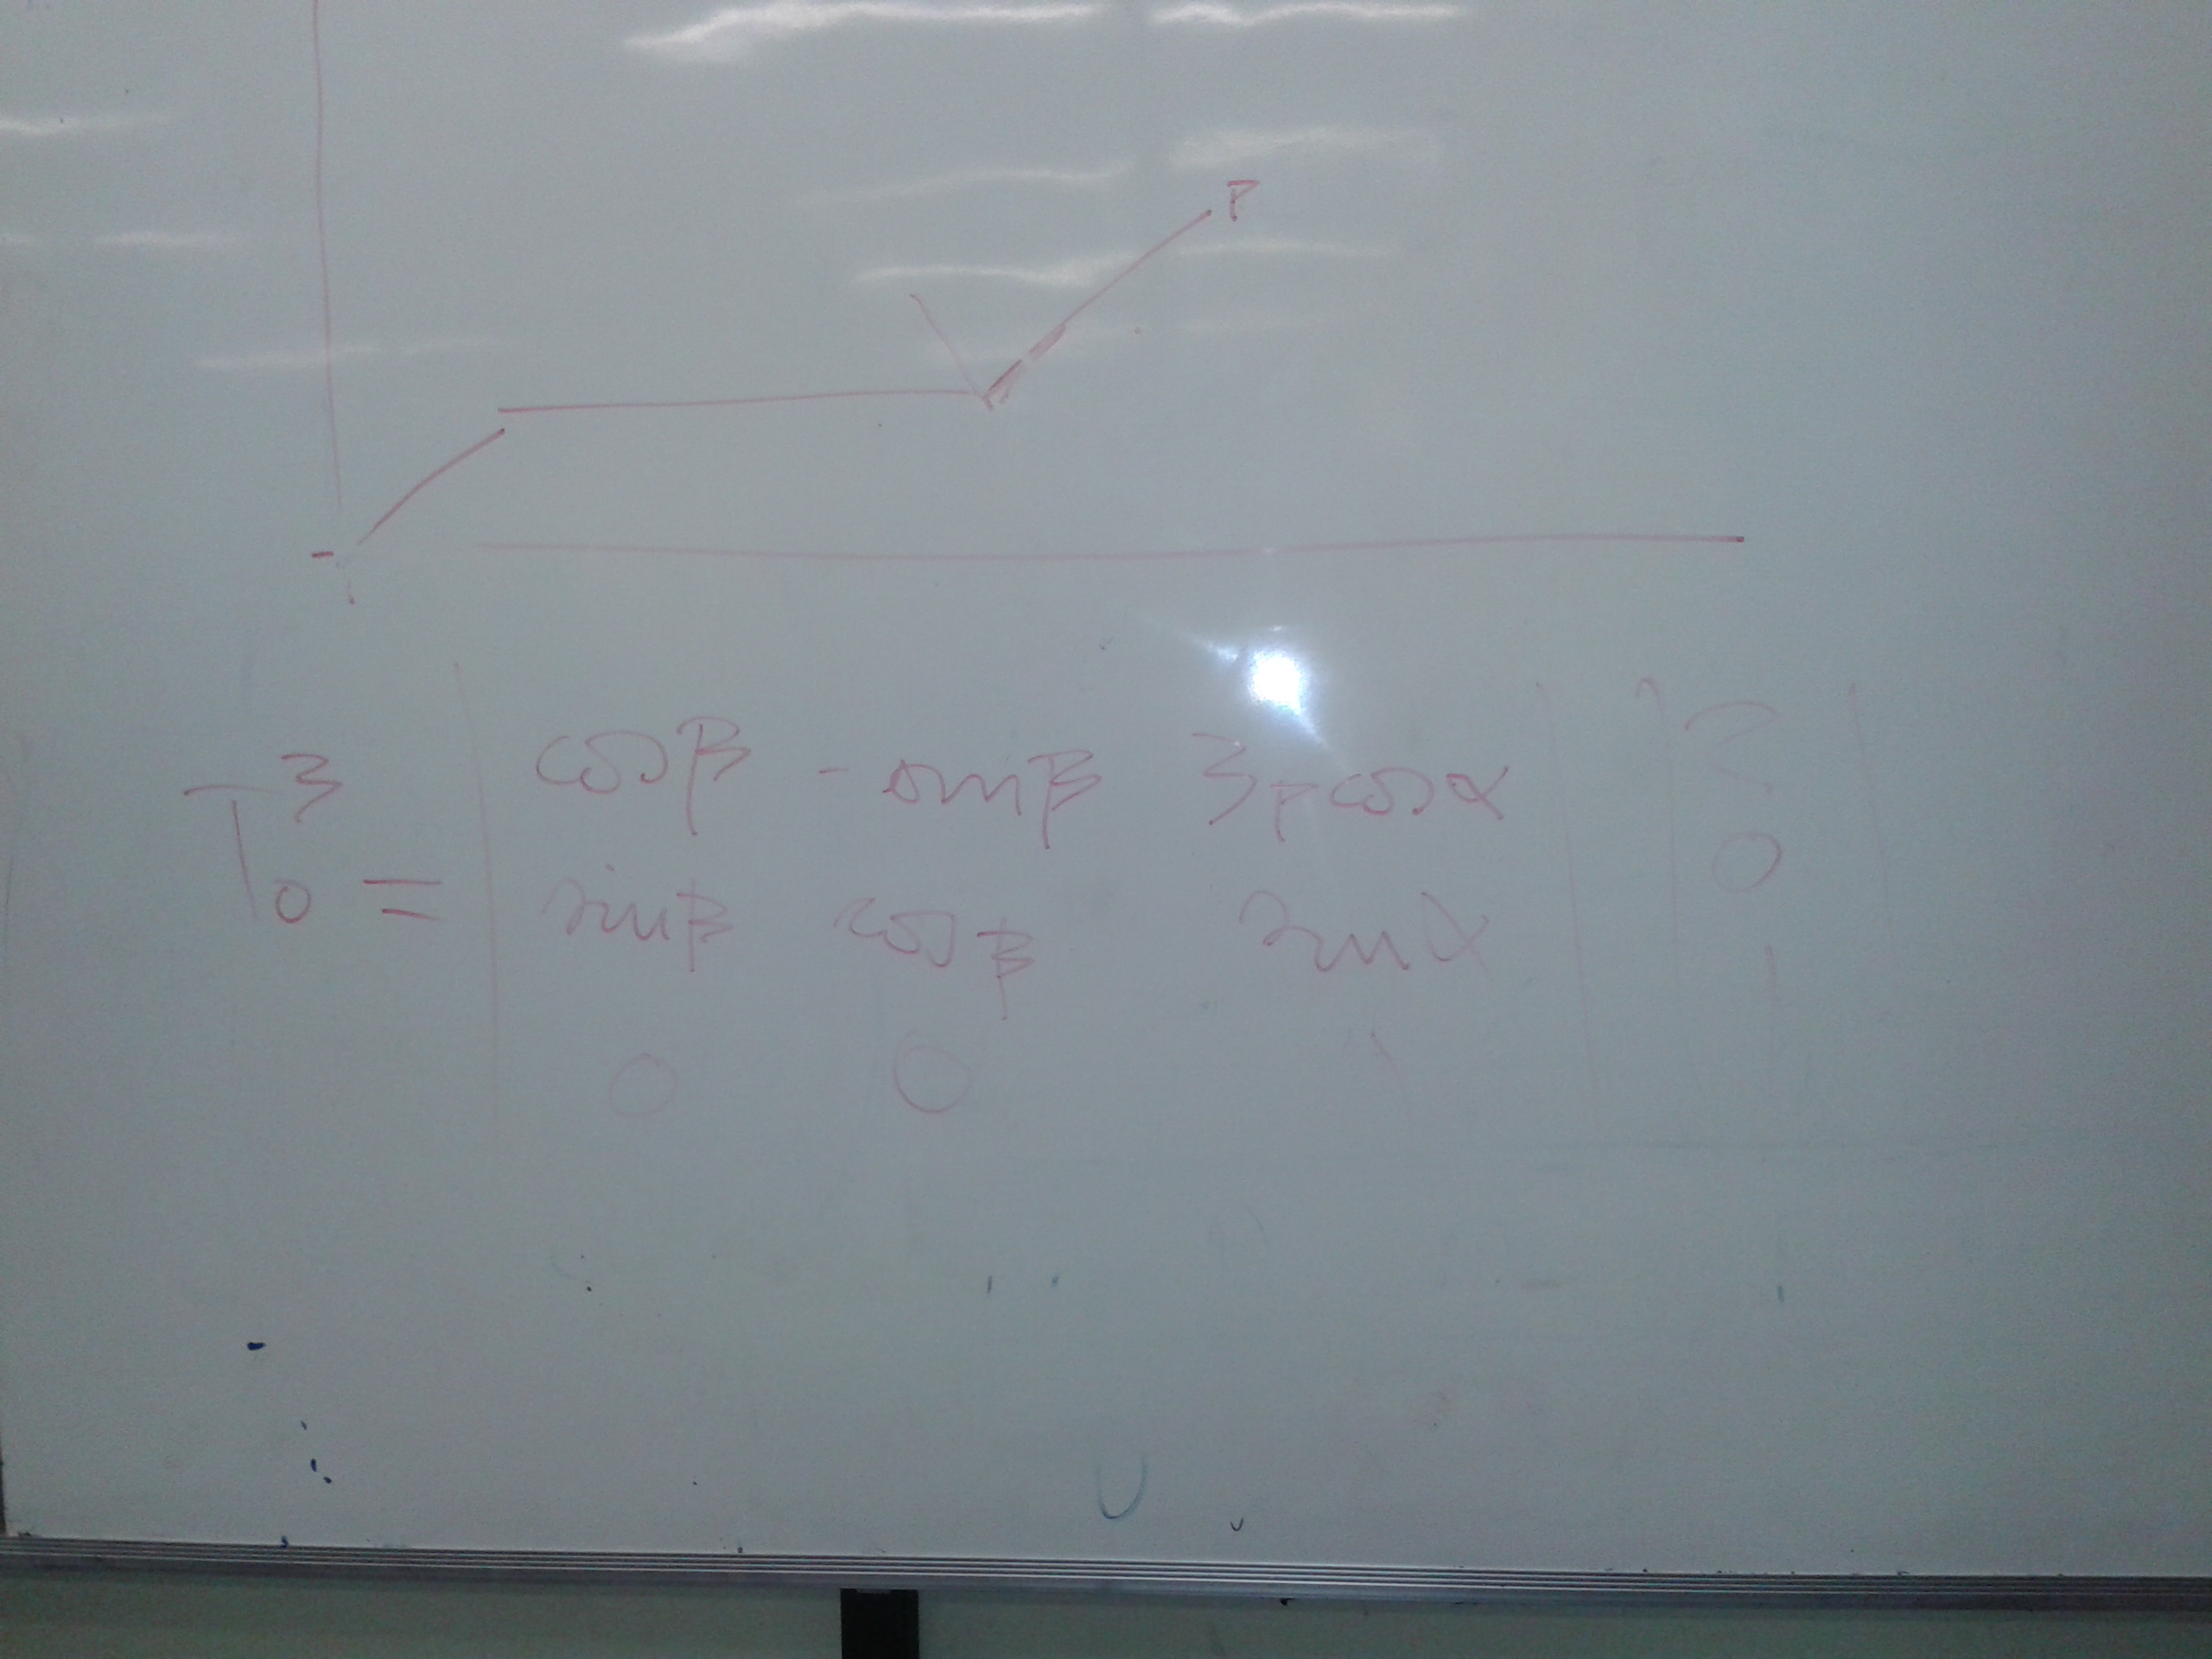 P
T₀³ = | cosβ -sinβ 3+cosα | | 2 |
sinβ cosβ sinα 0
0 0 1 1